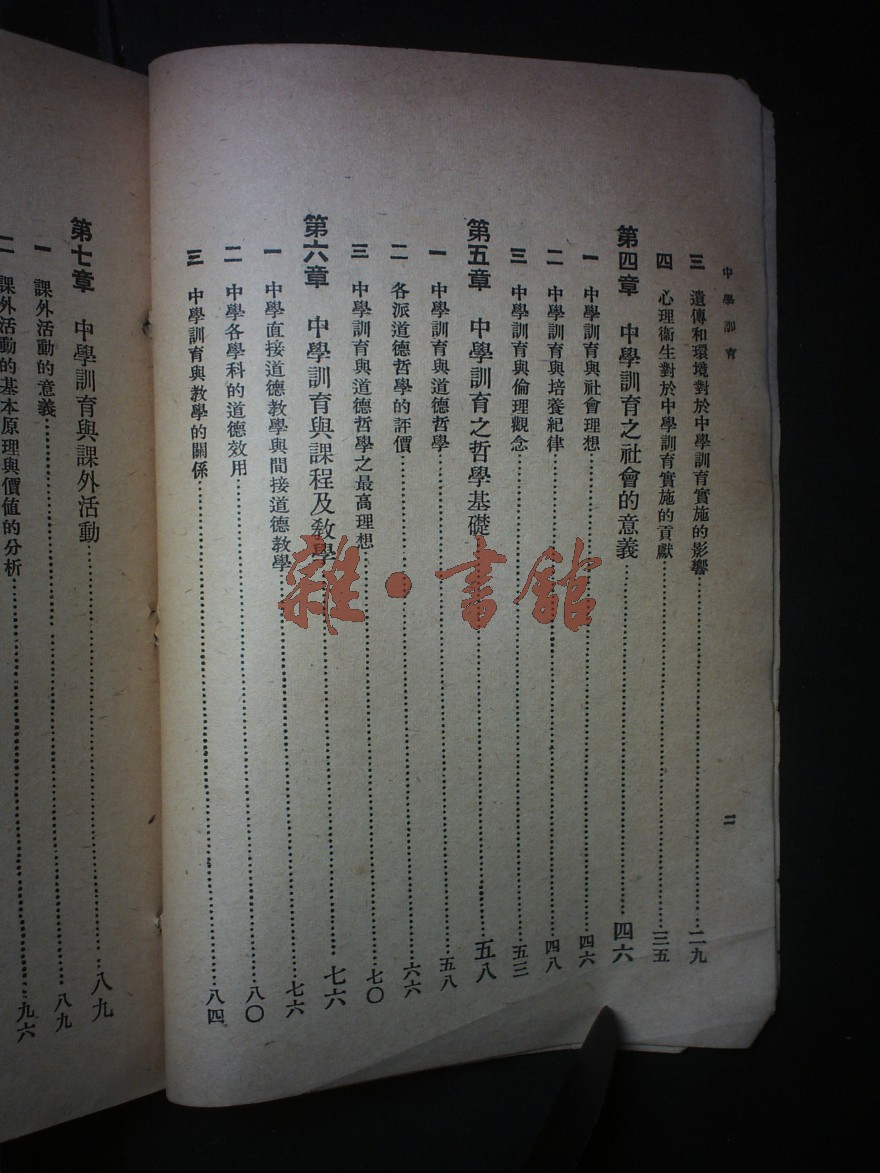 中學訓育
二
三　遺傳和環境對於中學訓育實施的影響……二九
四　心理衞生對於中學訓育實施的貢獻……三五
第四章　中學訓育之社會的意義……四六
一　中學訓育與社會理想……四六
二　中學訓育與培養紀律……四八
三　中學訓育與倫理觀念……五三
第五章　中學訓育之哲學基礎……五八
一　中學訓育與道德哲學……五八
二　各派道德哲學的評價……六六
三　中學訓育與道德哲學之最高理想……七〇
第六章　中學訓育與課程及教學……七六
一　中學直接道德教學與間接道德教學……七六
二　中學各學科的道德效用……八〇
三　中學訓育與教學的關係……八四
第七章　中學訓育與課外活動……八九
一　課外活動的意義……八九
二　課外活動的基本原理與價値的分析……九六
雜·書館